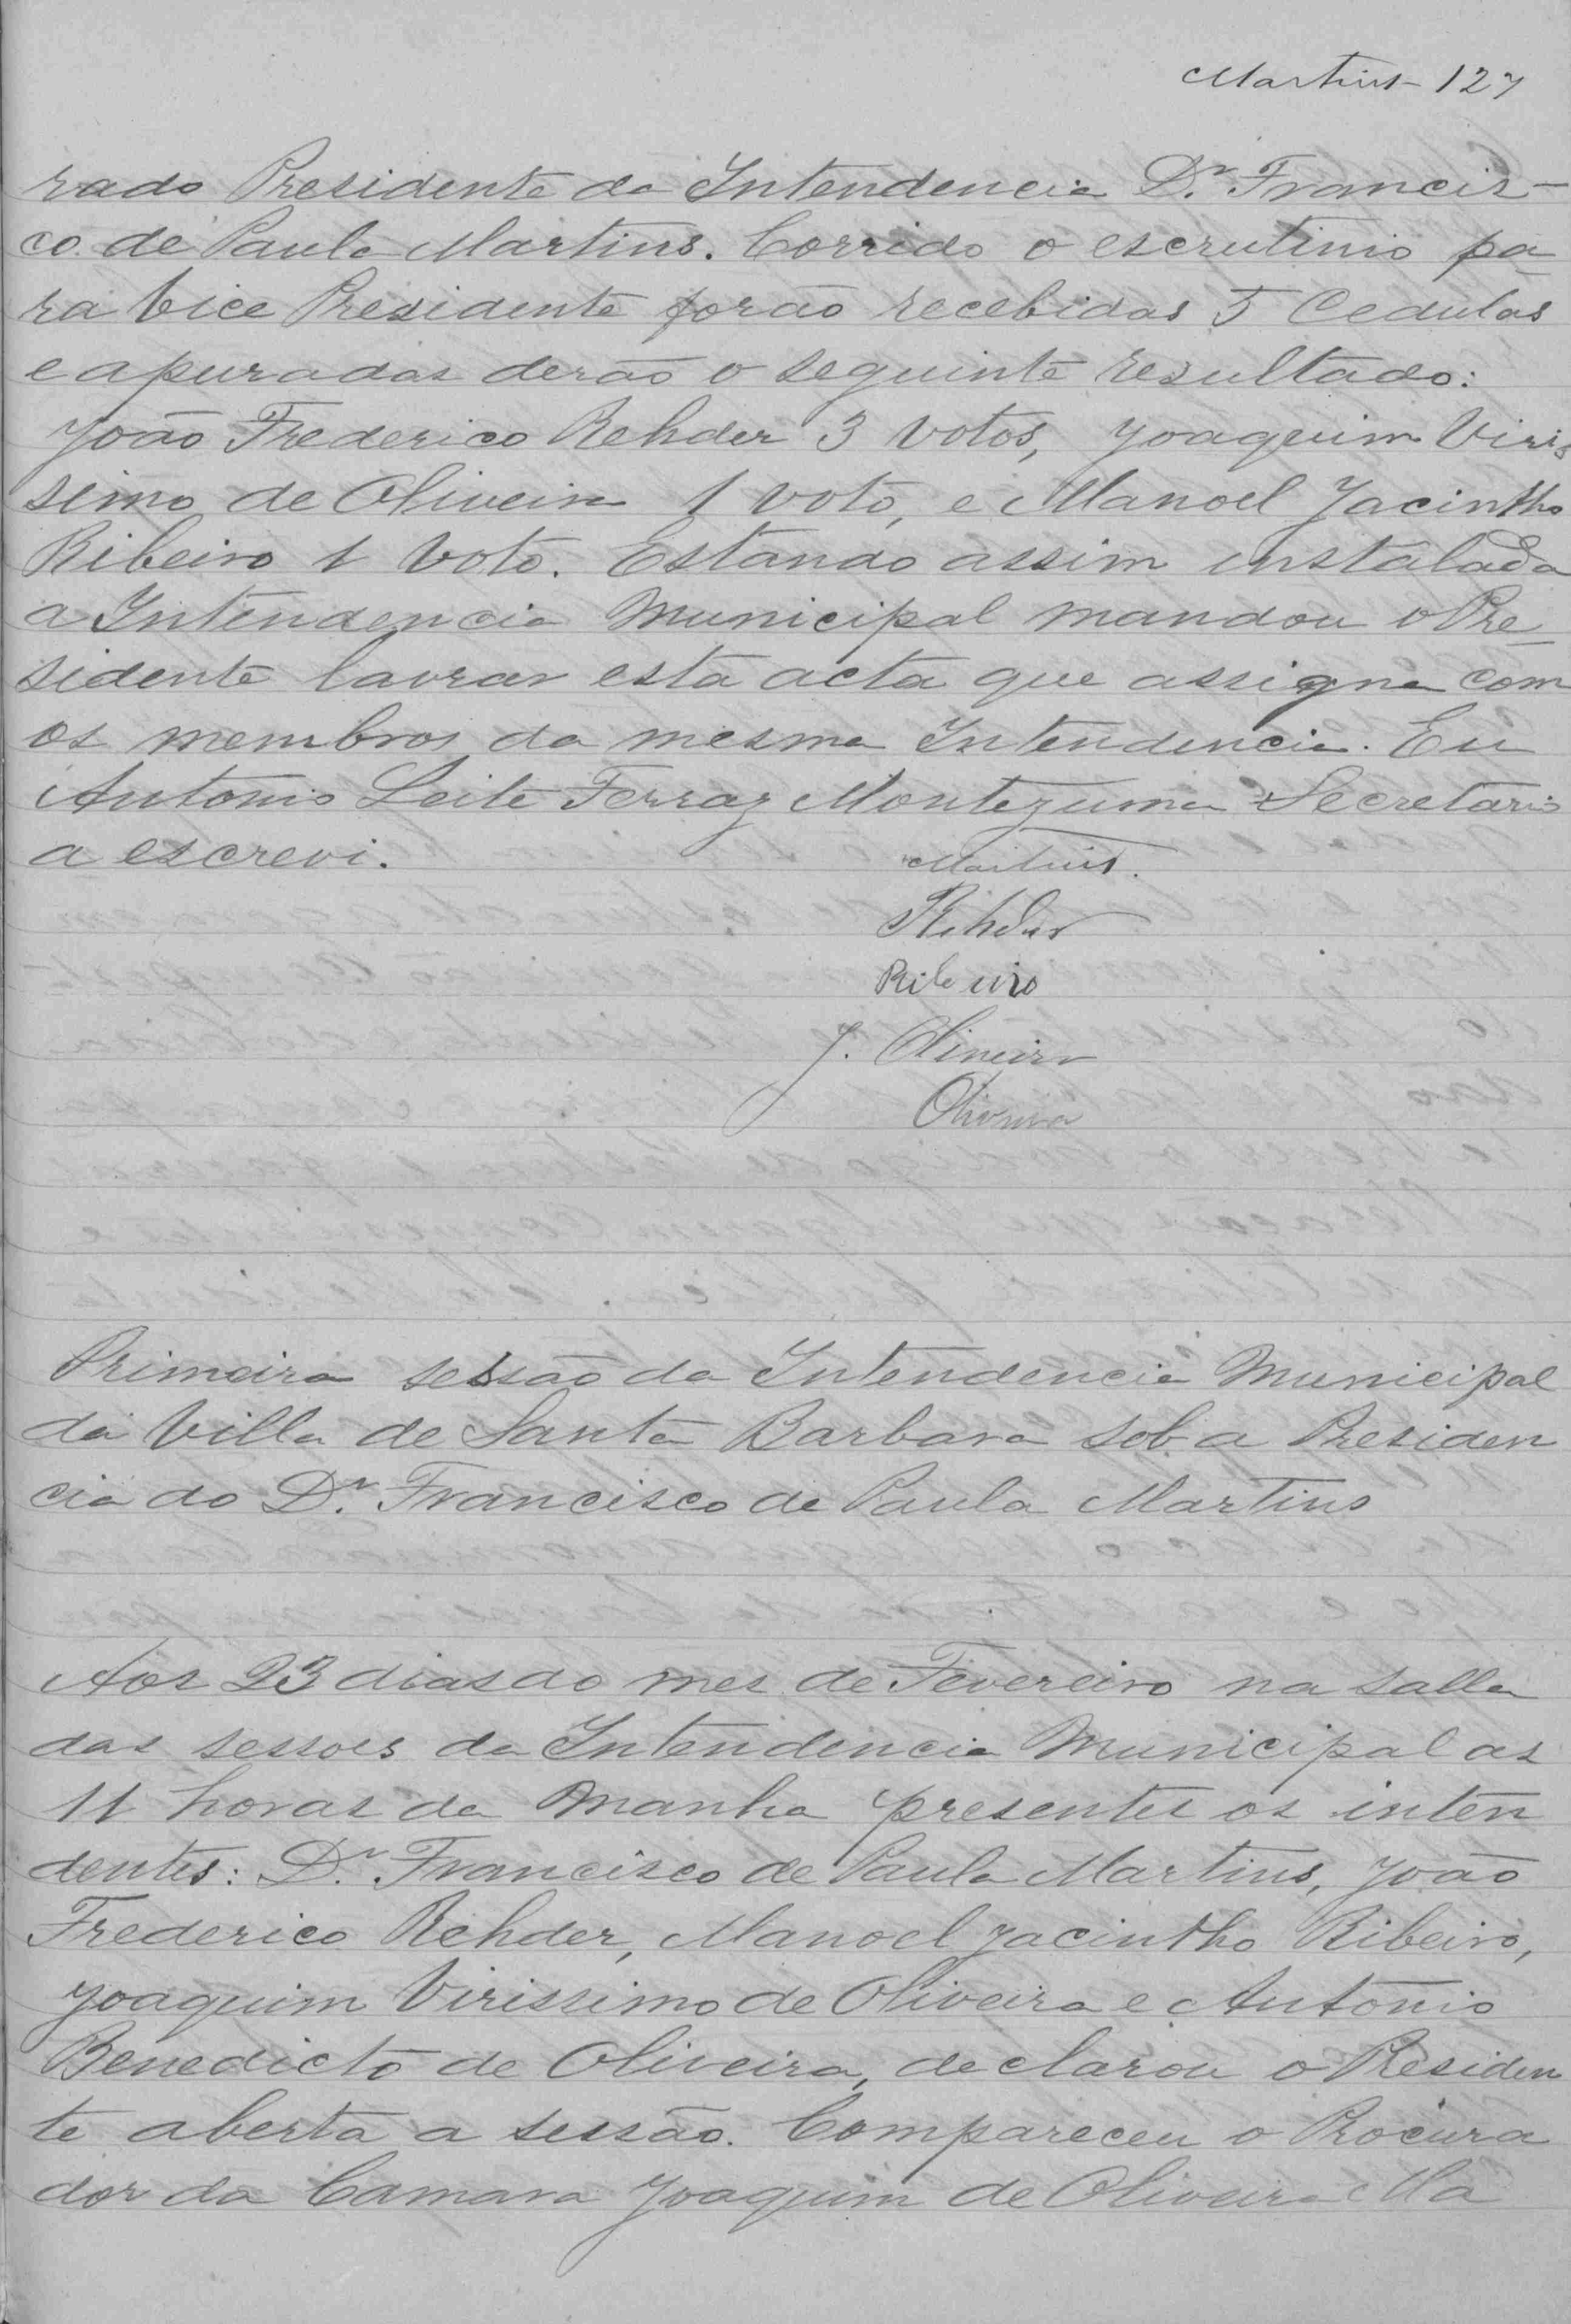 Martins - 127
rado Presidente da Intendencia Dr. Francis-
co de Paula Martins. Corrido o escrutinio pa
ra Vice Presidente forão recebidas 5 Cedulas
e apuradas derão o seguinte resultado:
João Frederico Rehder 3 votos, Joaquim Viris
simo de Oliveira 1 voto, e Manoel Jacintho
Ribeiro 1 voto. Estando assim instalada
a Intendencia Municipal mandou o Pre
sidente lavrar esta acta que assigna com
os membros da mesma Intendencia. Eu
Antonio Leite Ferraz Montezuma Secretario
a escrevi.
Martins.
Rehder
Ribeiro
J. Oliveira
Oliveira
Primeira sessão da Intendencia Municipal
da Villa de Santa Barbara sob a Presiden
cia do Dr. Francisco de Paula Martins
Aos 23 dias do mes de Fevereiro na salla
das sessoes da Intendencia Municipal as
11 horas da manha presentes os inten
dentes: Dr. Francisco de Paula Martins, João
Frederico Rehder, Manoel Jacintho Ribeiro,
Joaquim Virissimo de Oliveira e Antonio
Benedicto de Oliveira, declarou o Presiden
te aberta a sessão. Compareceu o Procura
dor da Camara Joaquim de Oliveira Ma